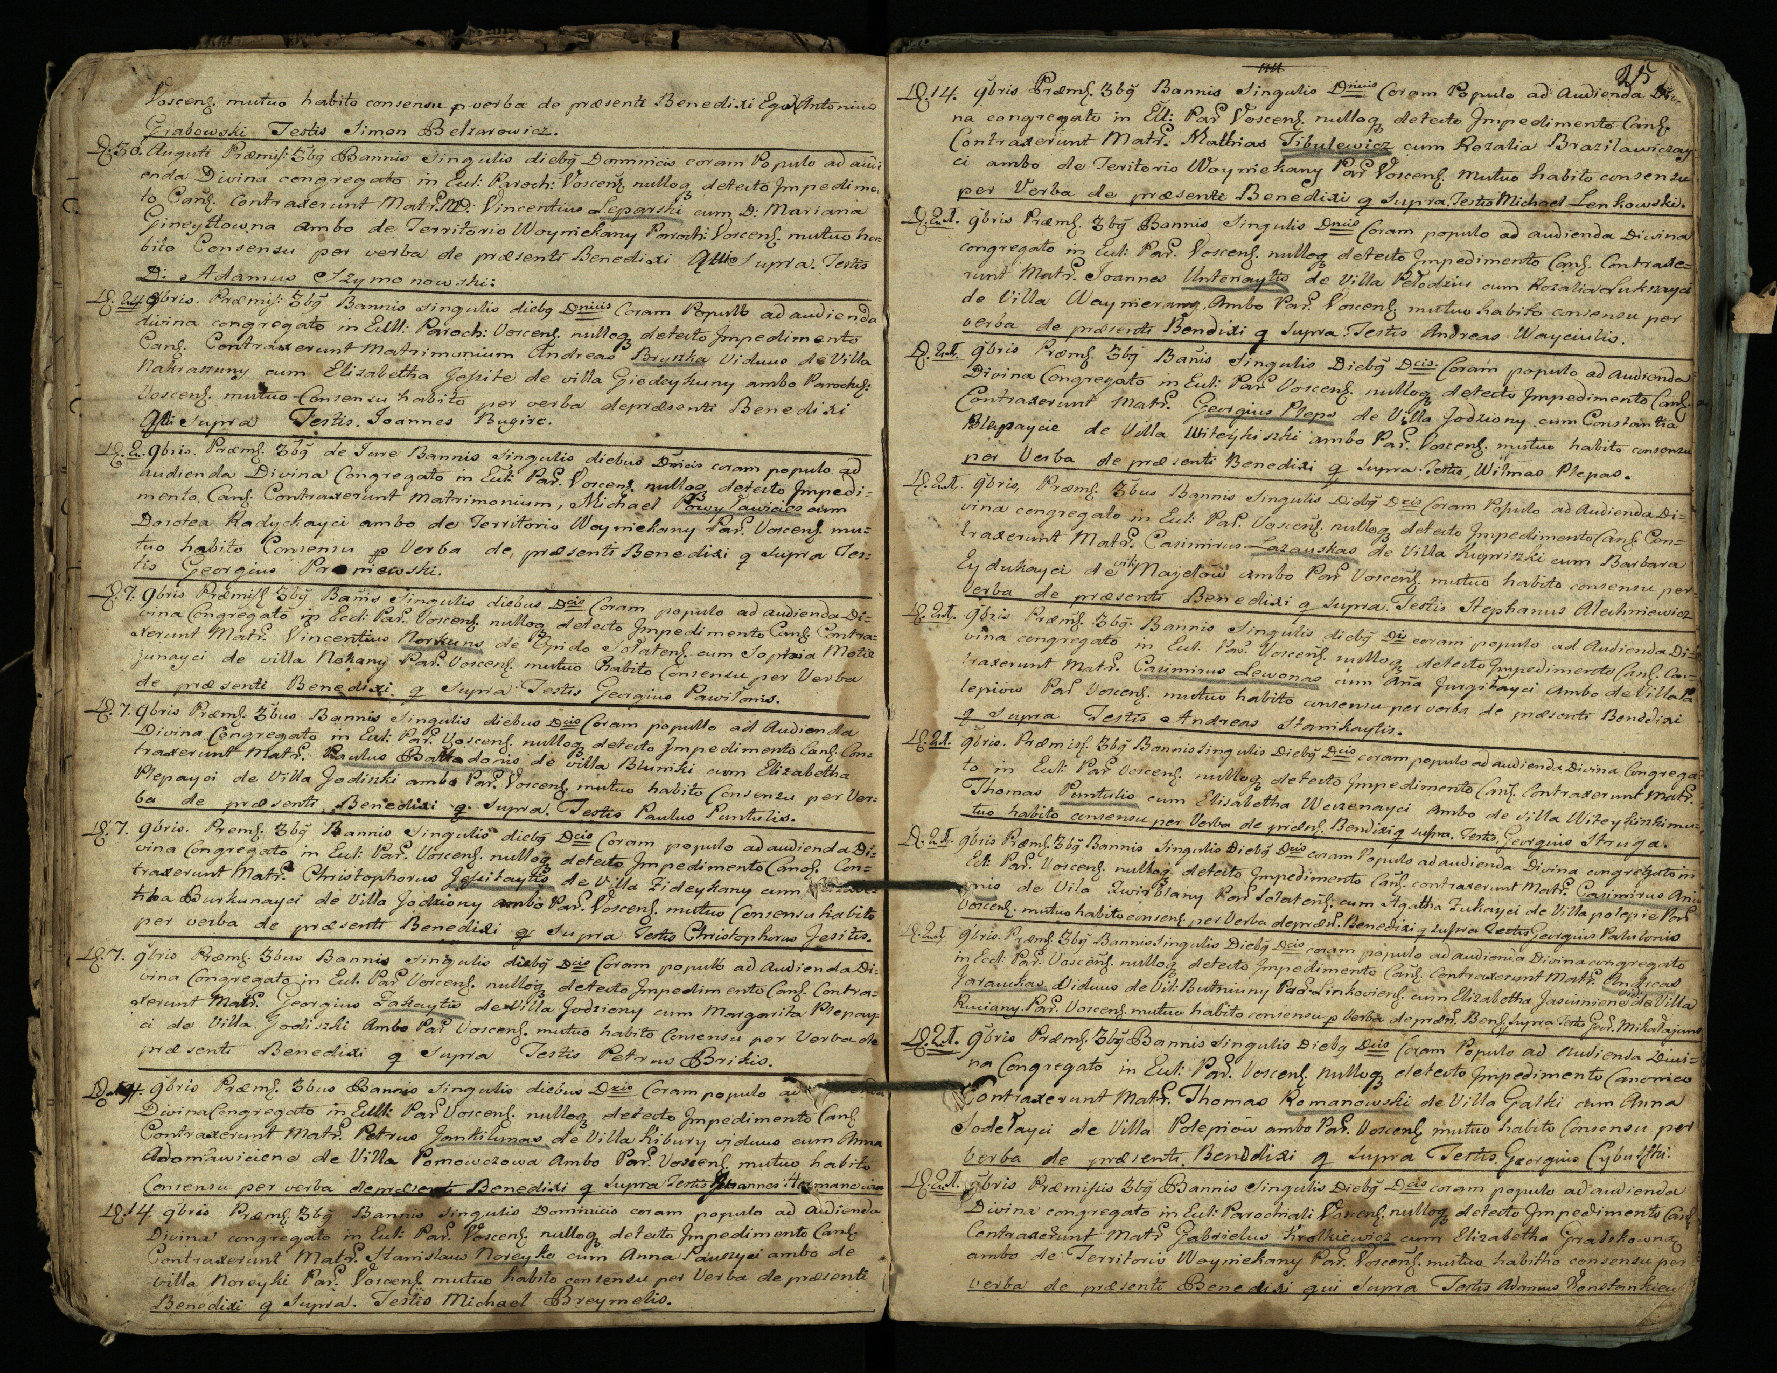 Voscenſ. mutuo habito consensu p verba de præsenti Benedixi Ego Antonius
Grabowski Testis Simon Belzarowicz.
D. 30. Augusti Præmiſ: 3bꝰ Bannis singulis diebꝰ Dominicis coram Populo ad audi
enda Divina congregato in Eccl: Paroch: Voscenſ nulloq detecto Impedime,
to Canſ. Contraxerunt Matr. MD: Vincentius Leparski cum D: Mariana
Gineytowna ambo de Territorio Woyniekany Paroch: Voscenſ. mutuo ha
bito Consensu per verba de præsenti Benedixi Qui supra. Testis
D: Adamus Szymonowski:
D. 24 8bris. Præmiſ: 3bꝰ Bannis singulis diebꝰ Dnicis Coram Popullo ad audienda
divina congregato in Eccl: Paroch: Voscenſ. nulloq detecto Impedimento
Canſ. Contraxerunt Matrimonium Andreas Bryszka Viduus de Villa
Nakraszuny cum Elizabetha Jesite de villa Giedeykuny ambo Parochiſ:
Voscenſ. mutuo Consensu habito per verba depræsenti Benedixi
Qui Supra Testis. Joannes Bugire.
D. 2. 9bris. Præmſ. 3bꝰ de Jure Bannis singulis diebus Dnicis coram populo ad
audienda Divina Congregato in Ecl: Par. Voscenſ. nulloq detecto Impedi-
mento Canſ. Contraxerunt Matrimonium, Michael Powylawicies cum
Dorotea Radyckayci ambo de Territorio Woyniekany Par. Voscenſ. mu-
tuo habito Consensu p Verba de præsenti Benedixi q supra Tes-
tis Georgius Paroniewski.
D. 7. 9bris Præmiſ 3bꝰ Banis Singulis diebus Dcis Coram populo ad audienda Di-
vina Congregato in Eccl: Par. Voscenſ. nulloq detecto Impedimento Canſ Contra-
xerunt Matr. Vincentius Norkuns de Opido Solatenſ. cum Sophia Motie
junayci de villa Rokany Par. Voscenſ. mutuo habito Consensu per Verba
de præsenti Benedixi q Supra Testis Georgius Pawilonis.
D. 7. 9bris Præmſ. 3bus Bannis Singulis diebus Dcis Coram popullo ad Audienda
Divina Congregato in Ecl: Par. Voscenſ. nulloq detecto Impedimento Canſ. Con-
traxerunt Matr. Paulus Balladonis de villa Blumki cum Elizabetha
Plepayci de Villa Jodiszki ambo Par. Voscenſ. mutuo habito Consensu per Ver-
ba de præsenti Benedixi q. Supra. Testis Paulus Puntulis.
D. 7. 9bris. Premſ. 3bꝰ Bannis Singulis diebꝰ Dcis Coram populo ad audienda Di-
vina Congregato in Ecl: Par. Voscenſ. nulloq detecto Impedimento Canoſ. Con-
traxerunt Matr. Christophorus Jesitaytis de Villa Zideykany cum
tha Burkunayci de Villa Jodziony ambo Par. Voscenſ. mutuo Consensu habito
per verba de præsenti Benedixi q Supra Testis Christophorus Jesitis.
D. 7. 9bris Præmſ. 3bus Bannis Singulis diebꝰ Dcis Coram populo ad Audienda Di-
vina Congregato in Ecl. Par Voscenſ. nulloq detecto Impedimento Canſ. Contra-
xerunt Matr. Georgius Zakaytis de Villa Jodziony cum Margarita Plepay
ci de Villa Jodiszki Ambo Par Voscenſ. mutuo habito Consensu per Verba de
præsenti Benedixi q Supra Testis Petrus Brikis.
D. 14. 9bris Præmſ. 3bus Bannis Singulis diebus Dcis Coram populo ad
Divina Congregato in Eccl: Par Voscenſ. nulloq detecto Impedimento Canſ
Contraxerunt Matr. Petrus Jankilunas de Villa Kibury viduus cum Anna
Adomawiciene de Villa Pomowczowa Ambo Par. Voscenſ mutuo habito
Consensu per verba depræsenti Benedixi q Supra Testis Joannes Hermanowicz
D. 14 9bris Præmſ. 3bꝰ Bannis Singulis Dominicis coram populo ad audienda
Divina congregato in Ecl: Par. Voscenſ. nulloq detecto Impedimento Canſ
Contraxerunt Matr. Stanislaus Noreyko cum Anna Pauszyci ambo de
villa Noreyki Par. Voscenſ mutuo habito consensu per Verba de præsenti
Benedixi q Supra. Testis Michael Breymelis.
25
D. 14. 9bris Præmſ. 3bꝰ Bannis Singulis Dnicis Coram Populo ad Audienda Divi-
na congregato in Ecl: Par Voscenſ. nulloq detecto Impedimento Canſ.
Contraxerunt Matr. Mathias Tibulewicz cum Rozalia Brazilawiczay
ci ambo de Teritorio Woyniekany Par Voscenſ. mutuo habito consensu
per Verba de præsenti Benedixi q Supra. Testis Michael Lenkowski.
D. 21. 9bris Præmſ. 3bꝰ Bannis Singulis Dnicis Coram populo ad audienda Divina
congregato in Ecl: Par. Voscenſ. nulloq detecto Impedimento Canſ. Contraxe-
runt Matr. Joannes Untenaytis de Villa Pelodzius cum Rozalia Lukszayci
de Villa Woynierany Ambo Par. Voscenſ mutuo habito consensu per
verba de præsenti Bendixi q Supra. Testis Andreas Wayciulis.
D. 21. 9bris Præmſ 3bꝰ Banis Singulis Diebꝰ Dcis. Coram populo ad Audienda
Divina Congregato in Ecl: Par. Voscenſ. nulloq detecto Impedimento Canſ.
Contraxerunt Matr. Georgius Pleps de Villa Jodziony cum Constantia
Blepaycie de Villa Witeykiszki ambo Par. Voscenſ. mutuo habito consensu
per Verba de præsenti Benedixi q Supra. Testis, Wilmas Plepas.
D. 21. 9bris, Præmſ. 3bus Bannis Singulis Diebꝰ Dcis Coram Populo ad Audienda Di-
vina congregato in Ecl: Par. Voscenſ. nulloq detecto Impedimento Canſ. Con-
traxerunt Matr. Casimirus Lazauskas de Villa Kupriszki cum Barbara
Eydukayci de vil: Mayelow ambo Par Voscenſ. mutuo habito consensu per
Verba de præsenti Benedixi q Supra. Testis Stephanus Alechniewicz
D. 21. 9bris Præmſ. 3bꝰ. Bannis Singulis diebꝰ Dcis coram populo ad Audienda Di-
vina congregato in Ecl. Par. Voscenſ. nulloq detecto Impedimento Canſ. Con-
traxerunt Matr. Casimirus Lewonas cum Ana Jurgikayci Ambo de Villa Po
lepiow Par Voscenſ. mutuo habito consensu per verba de præsenti Benedixi
q Supra Testis Andreas Stanikaytis.
D. 21. 9bris. Præmisſ. 3bꝰ Bannis Singulis Diebꝰ Dcis coram populo ad audienda Divina Congrega
to in Ecl: Par Voscenſ. nulloq detecto Impedimento Canſ. Contraxerunt Matr.
Thomas Puntulis cum Elisabetha Weszenayci Ambo de villa Witeykiszki mu-
tuo habito consensu per Verba de præsenſ. Bendixi q supra. Testis. Georgius Struga.
D. 21. 9bris Præmſ. 3bꝰ Bannis Singulis Diebꝰ Dcis coram Populo ad audienda Divina congregato in
Ecl. Par. Voscenſ. nulloq detecto Impedimento Canſ. contraxerunt Matr. Casimirus Ani
unis de Vila Zwirblany Par Solatenſ. cum Agatha Zukayci de Villa polepie Par
Voscenſ. mutuo habito consenſ. per Verba depræsſ. Benedixi q supra Testis Georgius Palulonis
D. 21. 9bris. Præmſ. 3bꝰ Bannis Singulis Diebꝰ Dcis coram populo ad audienda Divina congregato
in Eccl. Par. Voscenſ. nulloq detecto Impedimento Canſ. Contraxerunt Matr. Andreas
Jarauskas Viduus de Vil: Butniuny Par. Linkovienſ. cum Elizabetha Jasiuniene vid: de Villa
Ruciany Par. Voscenſ. mutuo habito consensu p Verba de præn. Benſ. supra Testis Geor. Mikalajunas
D. 21. 9bris Præmſ. 3bꝰ Bannis Singulis Diebꝰ Dcis Coram Populo ad Audienda Divi-
na Congregato in Ecl: Par. Voscenſ nulloq detecto Impedimento Canonico
Contraxerunt Matr. Thomas Romanowski de Villa Galki cum Anna
Sodelayci de Villa Polepiow ambo Par. Voscenſ mutuo habito Consensu per
Verba de præsenti Benedixi q Supra Testis. Georgius Cybulski.
D. 21. 9bris Præmissis 3bꝰ Bannis Singulis Diebꝰ Dcis coram populo ad audienda
Divina congregato in Ecl: Parochiali Voscenſ. nulloq detecto Impedimento Canſ.
Contraxerunt Matr Gabrielus Krolkiewicz cum Elizabetha Grabskowna
ambo de Territorio Woyniekany Par. Voscenſ. mutuo habitho consensu per
verba de præsenti Benedixi qui Supra Testis Adamus Konstankiew